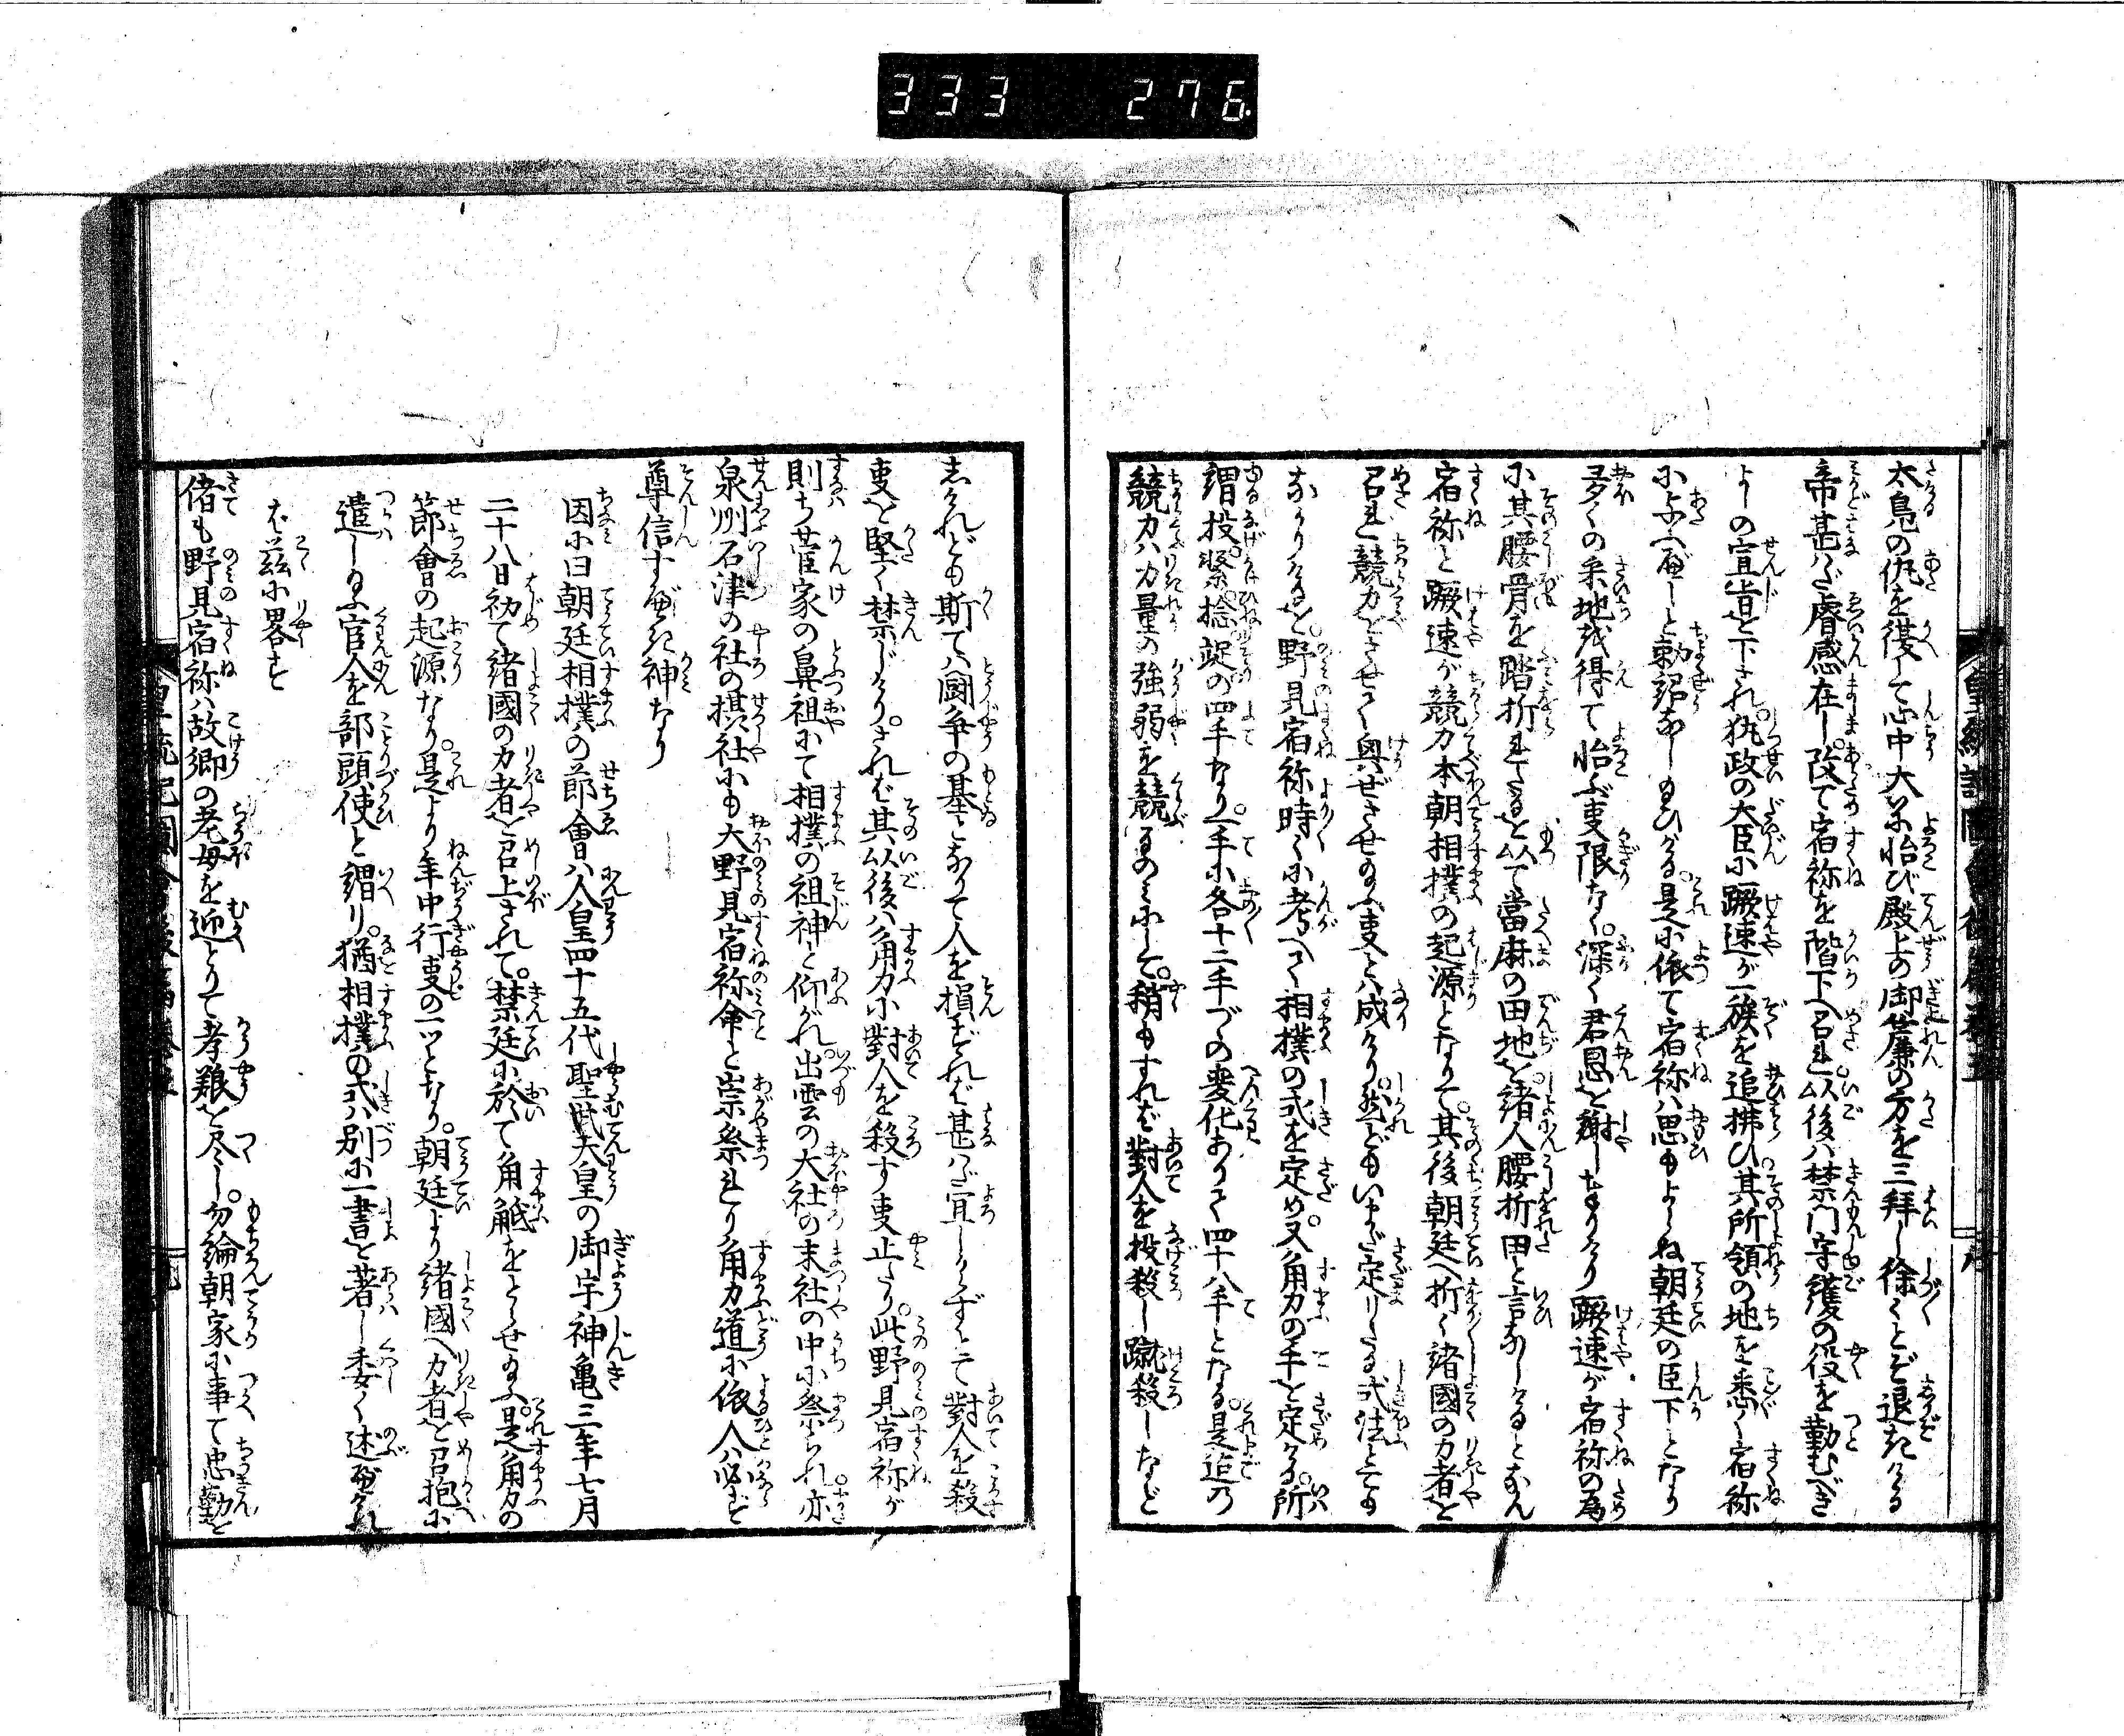 333 276
太鳬の仇を復して心中大に怡び殿上の御簾の方を三拝し徐々とぞ退きける
帝甚だ睿感在し。改て宿祢を階下へ召れ。以後ハ禁門守護の役を勤むべき
よしの宣旨を下され。執政の大臣に蹶速が一族を追拂ひ其所領の地を悉く宿祢
に与へ
と勅詔なし
ひける。是に依て宿祢ハ思もよらぬ朝廷の臣下となり
多くの采地を得て怡ぶ事限なく。深く君恩を謝し
けり蹶速が宿祢の為
に其腰骨を踏折れたるを以て當麻の田地を。諸人腰折田と言なしけるとなん
宿祢と蹶速が競力本朝相撲の起源となりて。其後朝廷へ折々諸國の力者を
召れ競力をさせて興ぜさせ給ふ事とハ成けり。然どもいまだ定りたる式法とても
なかりけるを。野見宿祢時々に考へて相撲の式を定め。又角力の手を定ける。所
謂投。繋。捻。
の四手なり。一手に各十二手づゝの変化ありて四十八手となる。是迄の
競力ハ力量の強弱を競るのミにして。稍もすれば對人を投殺し蹴殺しなど
しけれども斯てハ闘争の基となりて人を損ずれば甚だ宜しからずとて對人を殺
事を堅く禁じけり。されば其以後ハ角力に對人を殺す事止たり。此野見宿祢が
則ち菅家の鼻祖にて相撲の祖神と仰がれ。出雲の大社の末社の中に祭られ。亦
泉州石津の社の摂社にも大野見宿祢命と崇祭れり角力道に依人ハ必ず
尊信すべき神なり
因に曰朝廷相撲の節會ハ人皇四十五代聖武天皇の御宇神亀三年七月
二十八日初て諸國の力者を召上されて。禁廷に於て角觝をとらせ給ふ。是角力の
節會の起源なり。是より年中行事の一ツとなり。朝廷より諸國へ力者を召抱に
遣し給ふ官人を部領使と謂り。猶相撲の式ハ別に一書を著し委く述
けれ
ば茲に畧す
偖も野見宿祢ハ故郷の老母を迎とりて孝
を尽し。勿論朝家に事て忠勤を